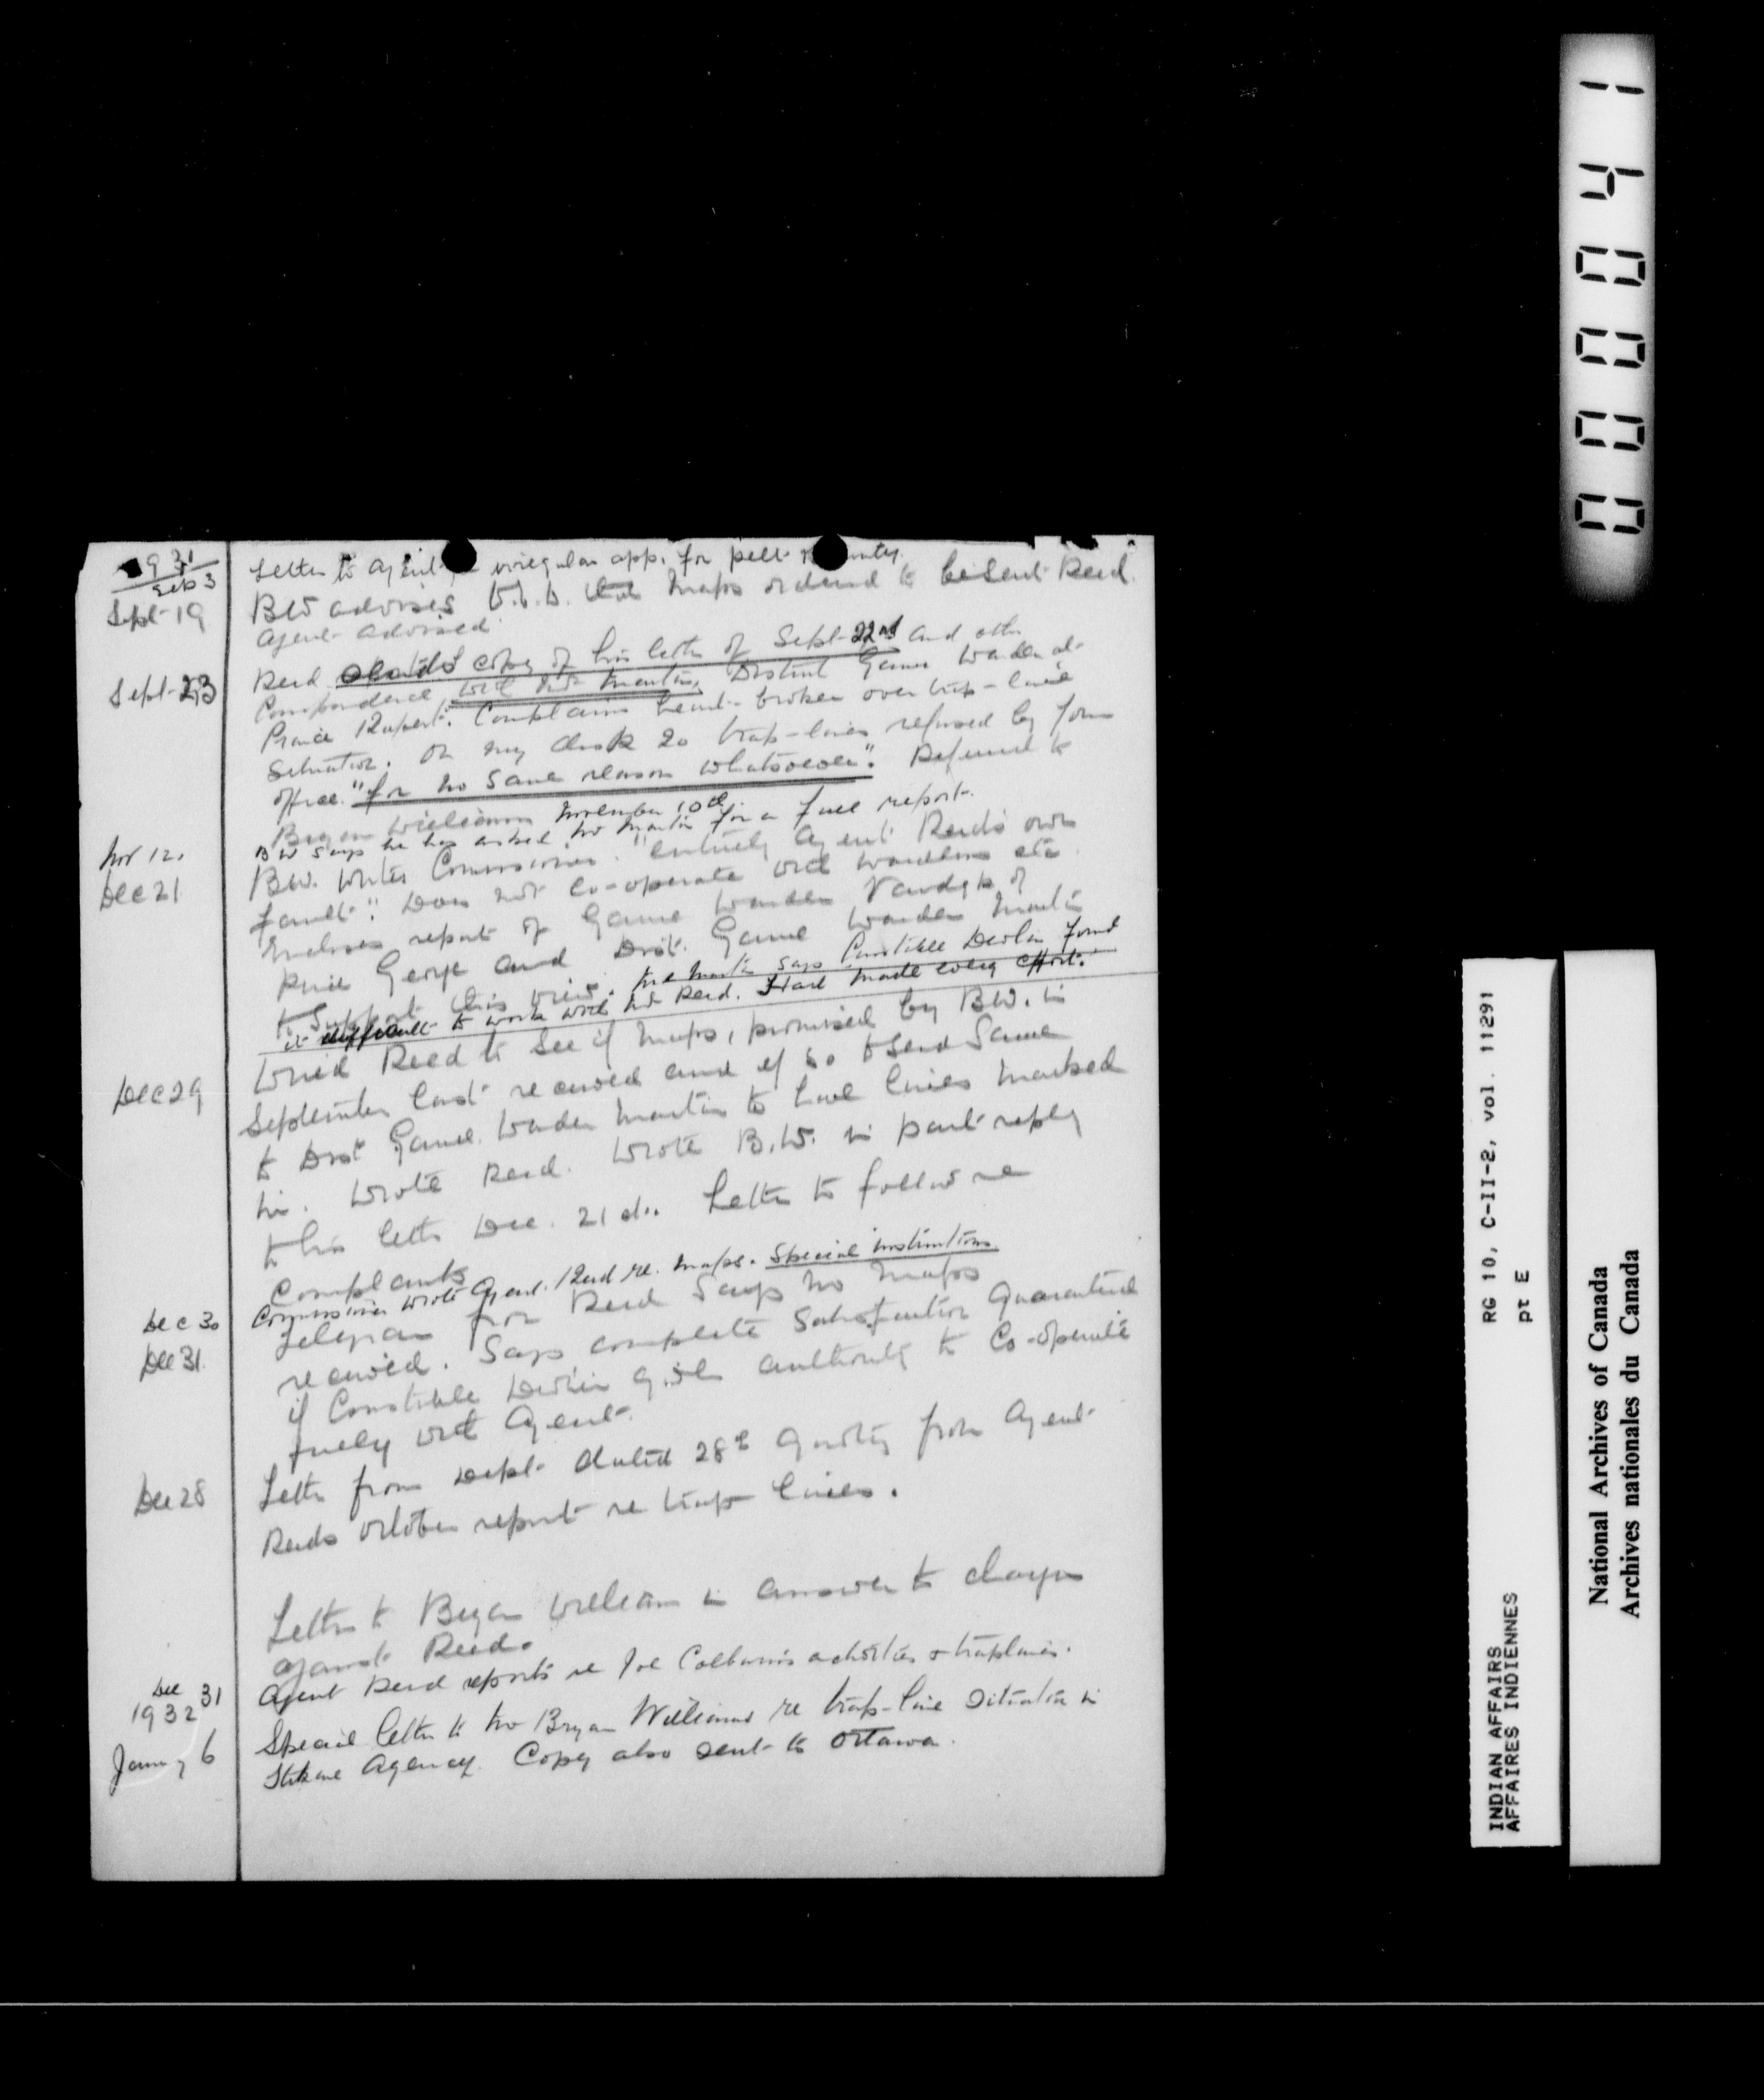 1931
Sep 3 Letter to Agent irregular app. for pelt
Sept-19 BW advises that maps ordered to be sent Reed.
Agent advised
Sept-23 Reed copy of his letter of Sept-22nd and other
Correspondence with Mr Martin, District Game Warden at
Prince Rupert. Complains heart-broken over trap-line
Situation. On my desk 20 trap-lines refused by
office. "for no sane reason whatsoever". Referred to
Bryan Williams November 10th
Nov 12. BW says he has asked Mr Martin for a full report.
Dec 21 B.W. writes Commissioner. "entirely Agent Reed's own
fault". Does not co-operate with wardens etc.
Encloses report of Game Warden Vandyk of
Prince George and Dist. Game Warden Martin
to support this view. Mr Martin says Constable Devlin found
it difficult to work with Mr Reed. Had made every effort.
Dec 29 Wired Reed to see if maps, promised by B.W. in
September last received and if so to send same
to Dist Game Warden Martin to have lines marked
in. Wrote Reed. Wrote B.W. in part reply
to his letter Dec. 21st. Letter to follow re
Complaints
Dec 30 Commissioner wrote Agent Reed re. maps. Special instructions
Dec 31. Telegram from Reed says no maps
received. Says complete satisfaction guaranteed
if Constable Devlin given authority to co-operate
fully with Agent.
Dec 28 Letter from Dept. dated 28th quoting from Agent
Reeds October report re trap lines.
Letter to Bryan Williams in answer to charges
against Reed.
Dec 31 Agent Reed reports re Joe activities & traplines.
1932
January 6 Special letter to Mr Bryan Williams re trap-line situation in
Stikine Agency. Copy also sent to Ottawa.
000041
INDIAN AFFAIRS RG 10, C-II-2, vol. 11291
AFFAIRES INDIENNES pt E
National Archives of Canada
Archives nationales du Canada